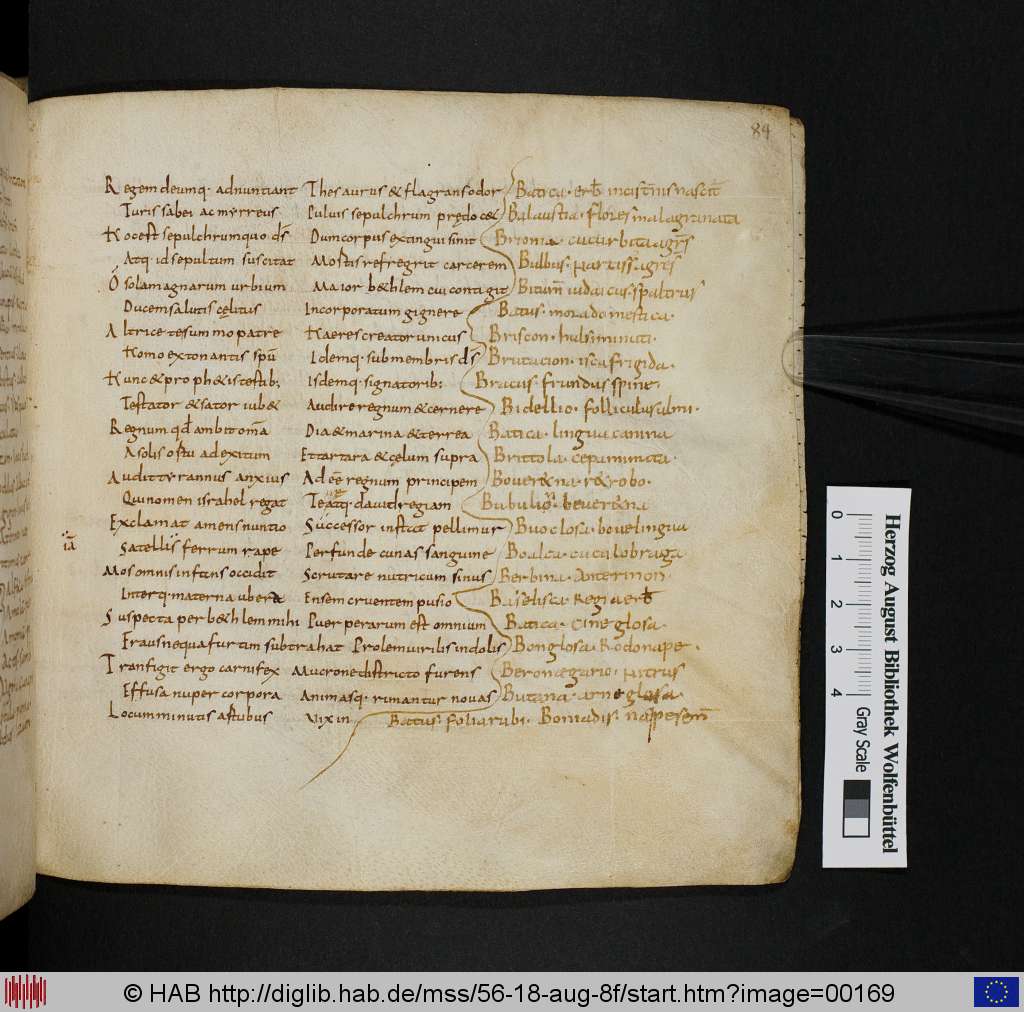 84
Regem deumq· adnuntiant Thesaurus & flagrans odor Batica· erƀ in cist̄nis nascit̄
Turis sabei ac myrreus Puluis sepulchrum prędoc& Balaustia· flores malagranata
Hoc est sepulchrum quo dš Dum corpus extingui sinit Brionia cucurbita agr̄s
Atq· id sepultum suscitat Mostis refregrit carcerem Bulbus· narciss agr̄s
O sola magnarum urbium Maior b&hlem cui contigit Bitum̄ iudaicus· spaltrus
Ducem salutis cęlitus Incorporatum gignere Batus· mora domestica·
Altrice tesummo patre Haeres creator unicus Briscon· huls minuti·
Homo ex tonantis spū Idemq· sub membris dš Brutacion· isca frigida·
Hunc & proph&is testib; Isdemq· signatorib; Bracus· frundus spine
Testator & sator iub& Audire regnum & cernere Bidellio· folliculus ulmi·
Regnum qđ ambit om̄a Dia & marina & terrea Batica· lingua canina
A solis ostu ad exitum Et tartara & cęlum supra Brittola· cepa minuta·
Audit tyrannus anxius Adeē regnum principem
Qui nomen israhel regat Teatq· dauid regiam
Exclamat amens nuntio Successor instat pellimur Buoclosa· bouelingua
iā
Satellis ferrum rape Perfunde cunas sanguine Boalca· cuculobraga
Mos omnis infans occidit Scrutare nutricum sinus Berbina·
Interq· materna ubera Ensem cruentem pusio Basilisca Regia erƀ
Suspecta per b&hlem mihi Puerperarum est omnium Batica· cineglosa·
Fraus nequa furtim subtrahat Prolem uirilis indolis Bonglosa· Rodonaper·
Tranfigit ergo carnifex Mucrone districto furens
Effusa nuper corpora Animasq· rimantur nouas Butana· arneglosa·
Locum minutis astubus Vix in Battus· folia rubi· Bomadis·
Herzog August Bibliothek Wolfenbüttel
Gray Scale
0 1 2 3 4
© HAB http://diglib.hab.de/mss/56-18-aug-8f/start.htm?image=00169